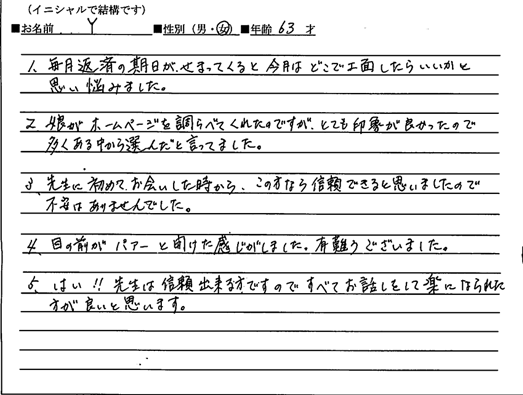 （イニシャルで結構です）
■お名前 Y ■性別（男・女）■年齢 63 才
1、毎月返済の期日が、せまってくると今月はどこで工面したらいいかと
思い悩みました。
2、娘がホームページを調らべてくれたのですが、とても印象が良かったので
多くある中から選んだと言ってました。
3、先生に初めてお会いした時から、この方なら信頼できると思いましたので
不安はありませんでした。
4、目の前がパァーと開けた感じがしました。有難うございました。
5、はい!! 先生は信頼出来る方ですのですべてお話しをして楽になられた
方が良いと思います。